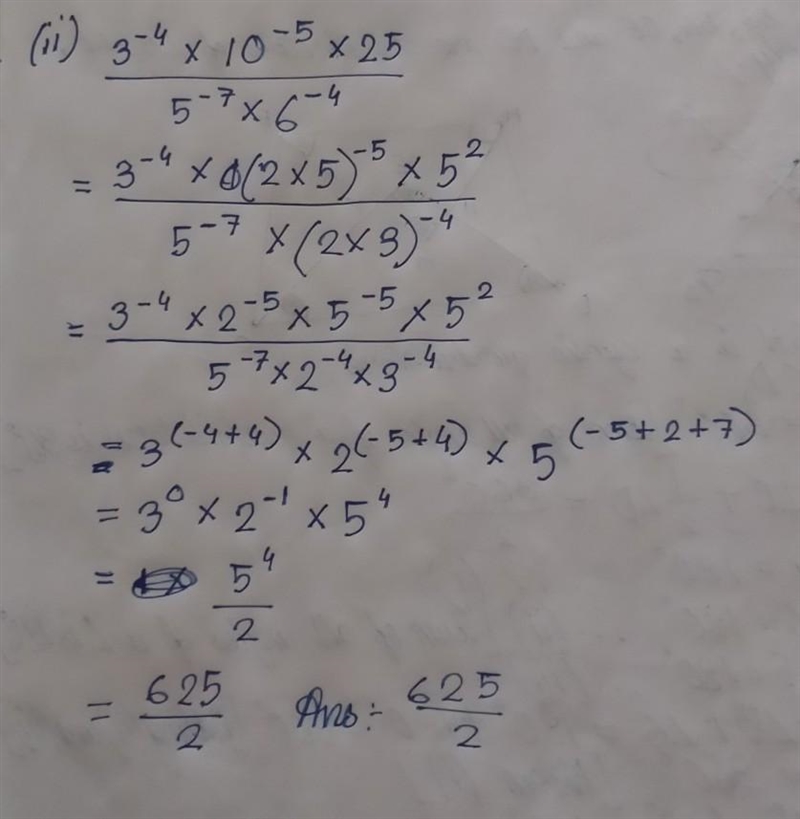 (ii) 3^-4 × 10^-5 × 25
5^-7 × 6^-4
= 3^-4 × (2×5)^-5 × 5^2
5^-7 × (2×3)^-4
= 3^-4 × 2^-5 × 5^-5 × 5^2
5^-7 × 2^-4 × 3^-4
= 3^(-4+4) × 2^(-5+4) × 5^(-5+2+7)
= 3^0 × 2^-1 × 5^4
= 5^4
2
= 625 Ans:- 625
2 2